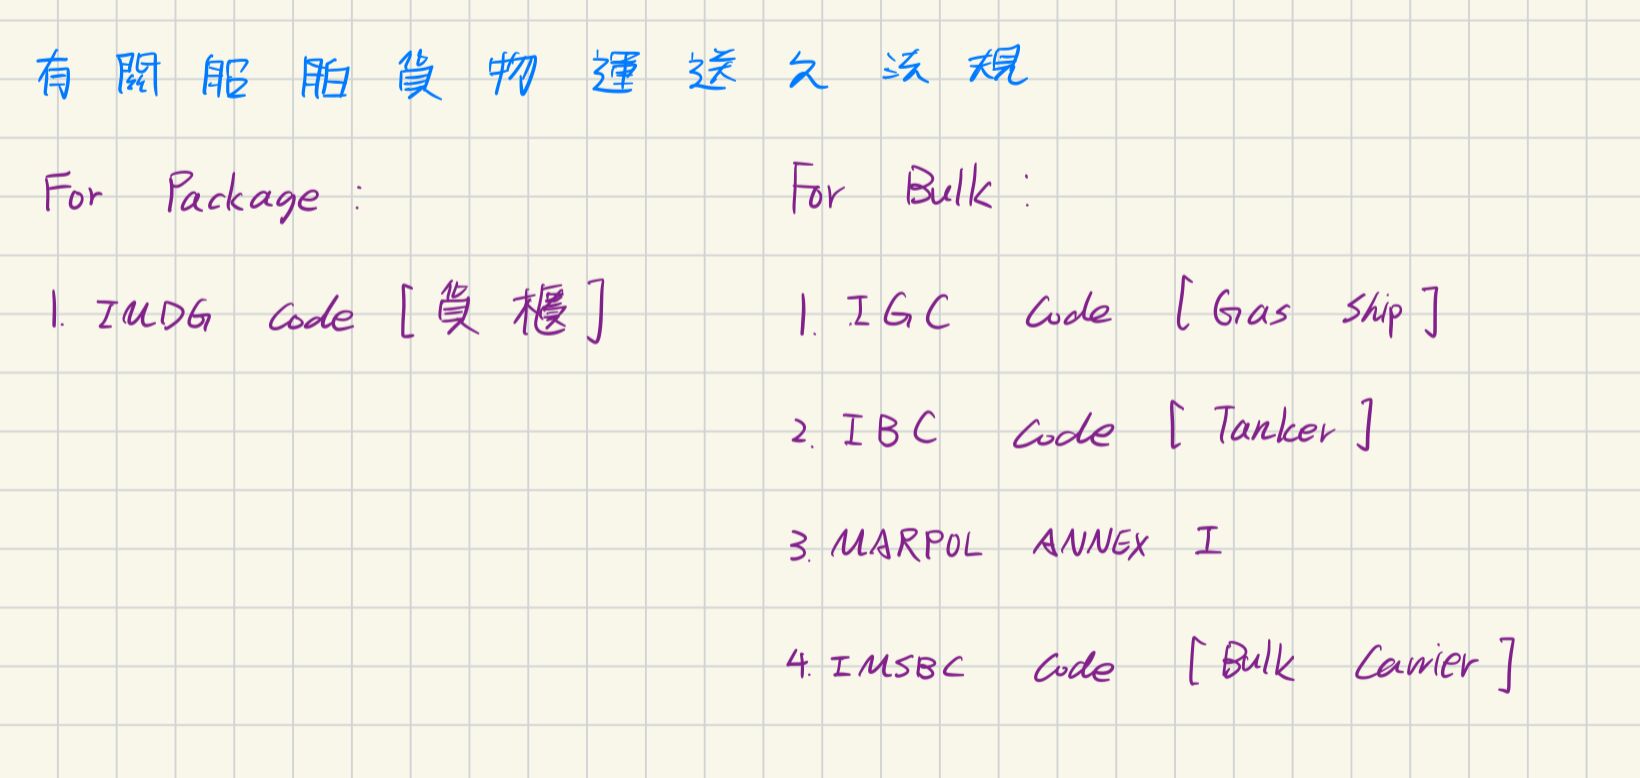 有關船舶貨物運送之法規
For Package :
1. IMDG Code [貨櫃]
For Bulk :
1. IGC Code [Gas ship]
2. IBC Code [Tanker]
3. MARPOL ANNEX I
4. IMSBC Code [Bulk Carrier]